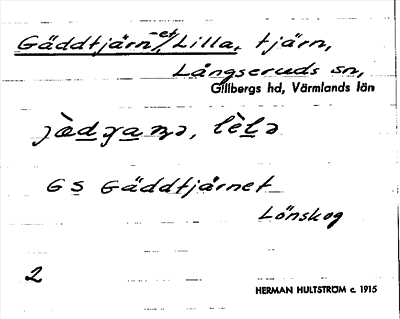 Gäddtjärn -et, Lilla, tjärn,
Långseruds sn,
Gillbergs hd, Värmlands län
lèlə
GS Gäddtjärnet
Lönskog
2
HERMAN HULTSTRÖM c. 1915